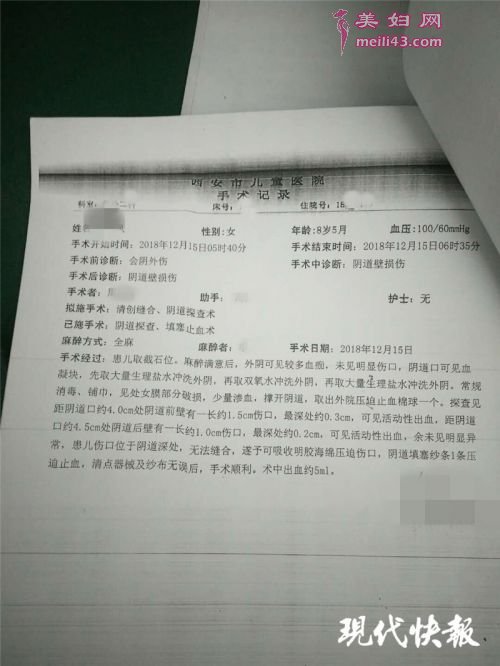 美妇网
meili43.com
西安市儿童医院
手术记录
科室: 二科 床号: 住院号: 18
姓 性别:女 年龄:8岁5月 血压:100/60mmHg
手术开始时间: 2018年12月15日05时40分 手术结束时间: 2018年12月15日06时35分
手术前诊断: 会阴外伤 手术中诊断: 阴道壁损伤
手术后诊断: 阴道壁损伤
手术者: 助手: 护士: 无
拟施手术: 清创缝合、阴道探查术
已施手术: 阴道探查、填塞止血术
麻醉方式: 全麻 麻醉者: 手术日期: 2018年12月15日
手术经过: 患儿取截石位。麻醉满意后, 外阴可见较多血痂, 未见明显伤口, 阴道口可见血
凝块, 先取大量生理盐水冲洗外阴, 再取双氧水冲洗外阴, 再取大量生理盐水冲洗外阴。常规
消毒、铺巾, 见处女膜部分破损, 少量渗血, 撑开阴道, 取出外院压迫止血棉球一个。探查见
距阴道口约4.0cm处阴道前壁有一长约1.5cm伤口, 最深处约0.3cm, 可见活动性出血, 距阴道
口约4.5cm处阴道后壁有一长约1.0cm伤口, 最深处约0.2cm, 可见活动性出血, 余未见明显异
常, 患儿伤口位于阴道深处, 无法缝合, 遂予可吸收明胶海绵压迫伤口, 阴道填塞纱条1条压
迫止血, 清点器械及纱布无误后, 手术顺利。术中出血约5ml。
现代快報